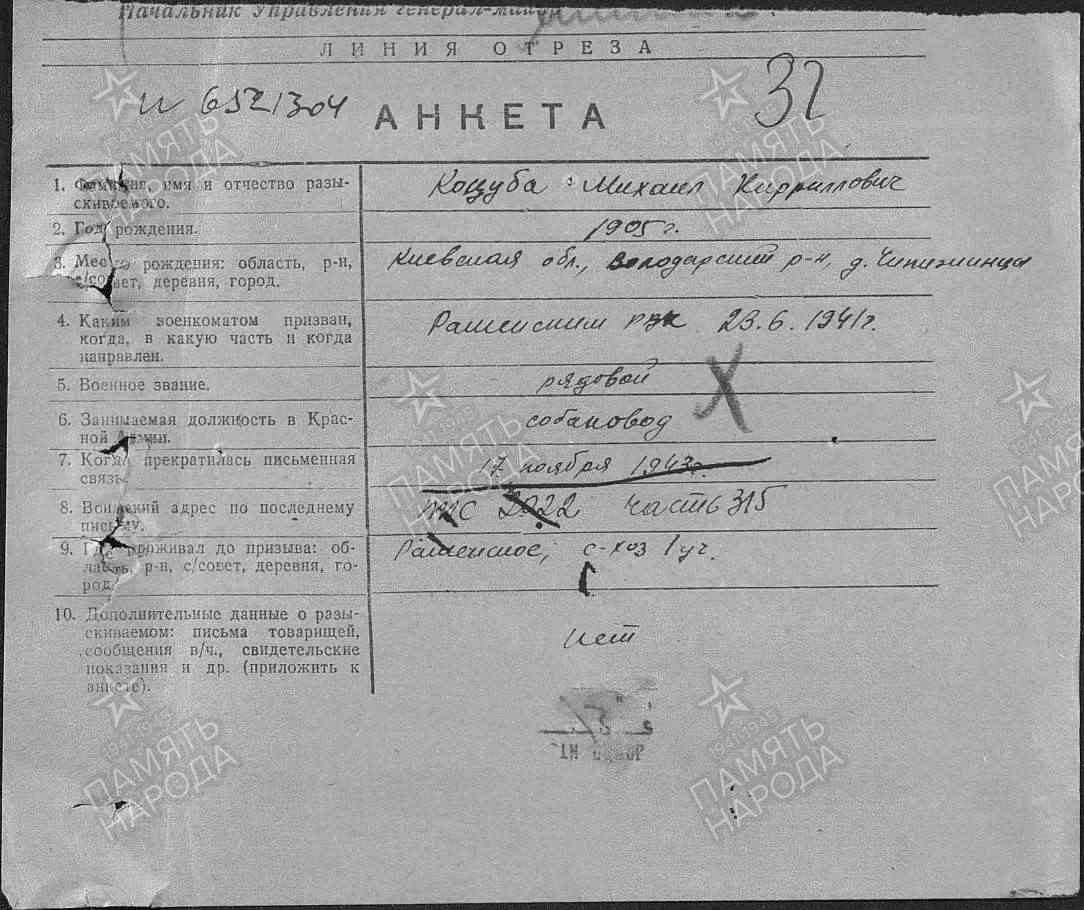 Начальник Управления генерал-майор
ЛИНИЯ ОТРЕЗА
и 6521304
АНКЕТА
32
1. Фамилия, имя и отчество разы-
скиваемого.
Коцуба Михаил Кирриллович
2. Год рождения.
1905 г.
3. Место рождения: область, р-н,
с/совет, деревня, город.
Киевская обл., Володарский р-н, д.
4. Каким военкоматом призван,
когда, в какую часть и когда
направлен.
РВК 23.6.1941г.
5. Военное звание.
рядовой
6. Занимаемая должность в Крас-
ной Армии.
собаковод
7. Когда прекратилась письменная
связь.
17 ноября 1943г.
8. Воинский адрес по последнему
письму.
ППС 2022 часть 315
9. Где проживал до призыва: об-
ласть, р-н, с/совет, деревня, го-
род.
с-хоз 1 уч.
10. Дополнительные данные о разы-
скиваемом: письма товарищей,
сообщения в/ч., свидетельские
показания и др. (приложить к
анкете).
Нет
1941-1945
ПАМЯТЬ
НАРОДА